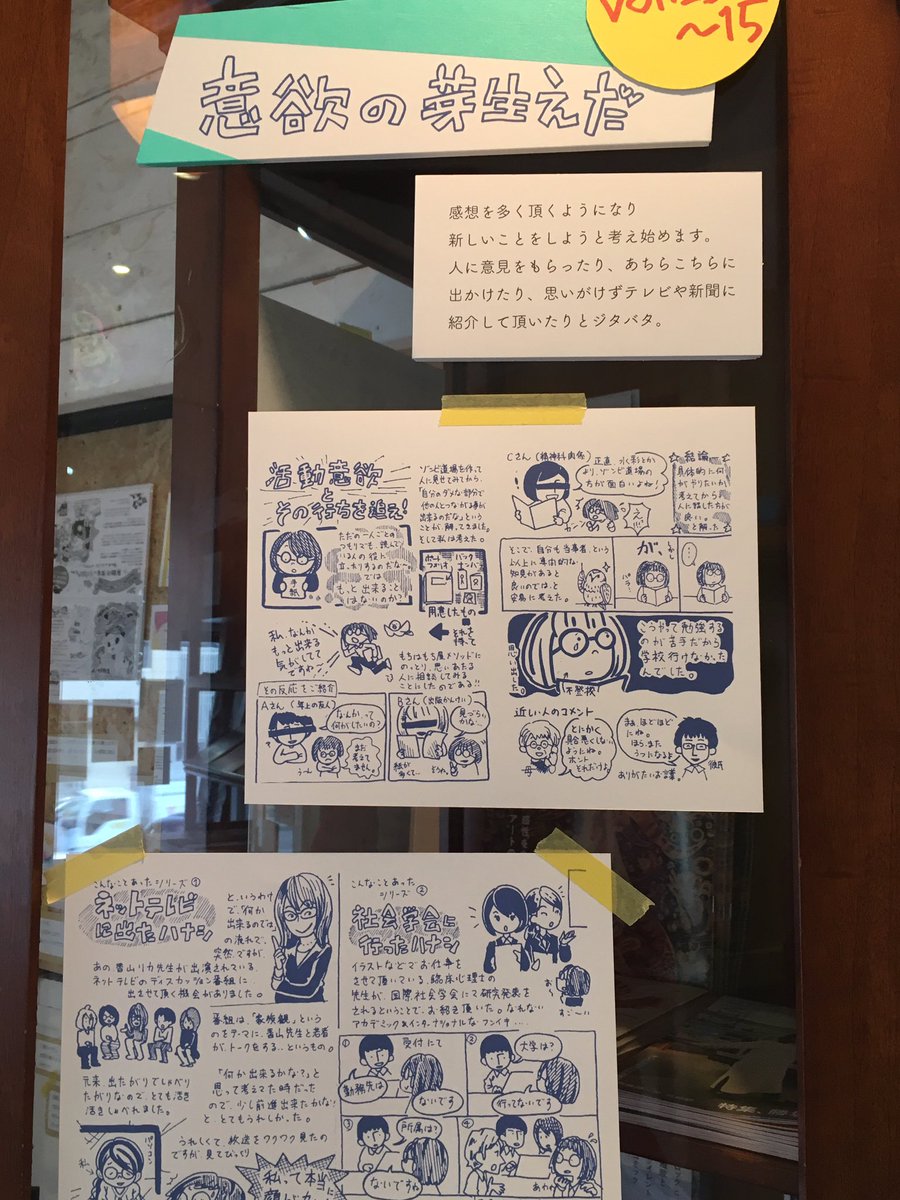 ~15
意欲の芽生えだ
感想を多く頂くようになり
新しいことをしようと考え始めます。
人に意見をもらったり、あちらこちらに
出かけたり、思いがけずテレビや新聞に
紹介して頂いたりとジタバタ。
活動意欲
と
その行方を追え!
ただの一人ごとの
つもりでも、読んで
いる人の役に
立ったりするのだな…
では
もっと出来ること
はないのか?
手紙
ゾンビ道場を作って
人に見せてみてから、
「自分のダメな部分で
他の人とつながる事が
出来るのだな」という
ことが、解ってきました。
そして私は考えた。
用意したもの
それを
持って
私、なんか
もっと出来る
気がしてて
ですねー
もちはもち屋メソッドに
のっとり、思いあたる
人に相談してみる
ことにしたのである!!
その反応をご紹介
Aさん(年上の友人)
なんか、って
何がしたいの?
まだ
考えて
ません。
うー
Bさん(出版かんけい)
見づらい
かな…
紙が
多くて…
どうも。
Cさん(精神科関係)
正直 水彩とか
より、ゾンビ道場の
方が面白いよね!
ガーン
え!!
結論
具体的に何
がやりたいか、
考えてから
人に話した方が
良い。
と解った
そこで、自分も当事者、という
以上に専門的な
知見があると
良いのでは、と
安易に考えた。
が、
…
こうやって勉強する
のが苦手だから
学校行けなかった
んでした。
思い出した。
不登校
近い人のコメント
とにかく
具合悪くしない
ようにね。
ホント
それだけよ
母
まぁほどほど
にね。
ほら、また
うつになるよ
ありがたいお言葉。
彼氏
こんなことあったシリーズ①
ネットテレビ
に出たハナシ
というわけ
で、「何か
出来るのでは」
の流れで、
突然ですが、
あの香山リカ先生が出演されている、
ネットテレビのディスカッション番組に
出させて頂く機会がありました。
番組は、「家族観」という
のをテーマに、香山先生と若者
が、トークをする…というもの。
元来 出たがりでしゃべり
たがりなので、とても活き
活きしゃべれました。
「何か出来るかな?」と
思って考えてた時だった
ので、少し前進出来たかな!
と、とてもうれしかった。
うれしくて、放送をワクワク見たの
ですが、見てびっくり
パソコン
私
私って本当に
こんなことあった
シリーズ②
社会学会に
行ったハナシ
イラストなどでお仕事を
させて頂いている、臨床心理士の
先生が、国際社会学会にて研究発表を
されるということで、お招き頂いた。なれない
アカデミック&インターナショナルなフンイキ…
お〜
すごーい
①
受付にて
勤務先は
ないです
②
大学は?
行ってないです
③
所属は?
ないですね
④
あわわ